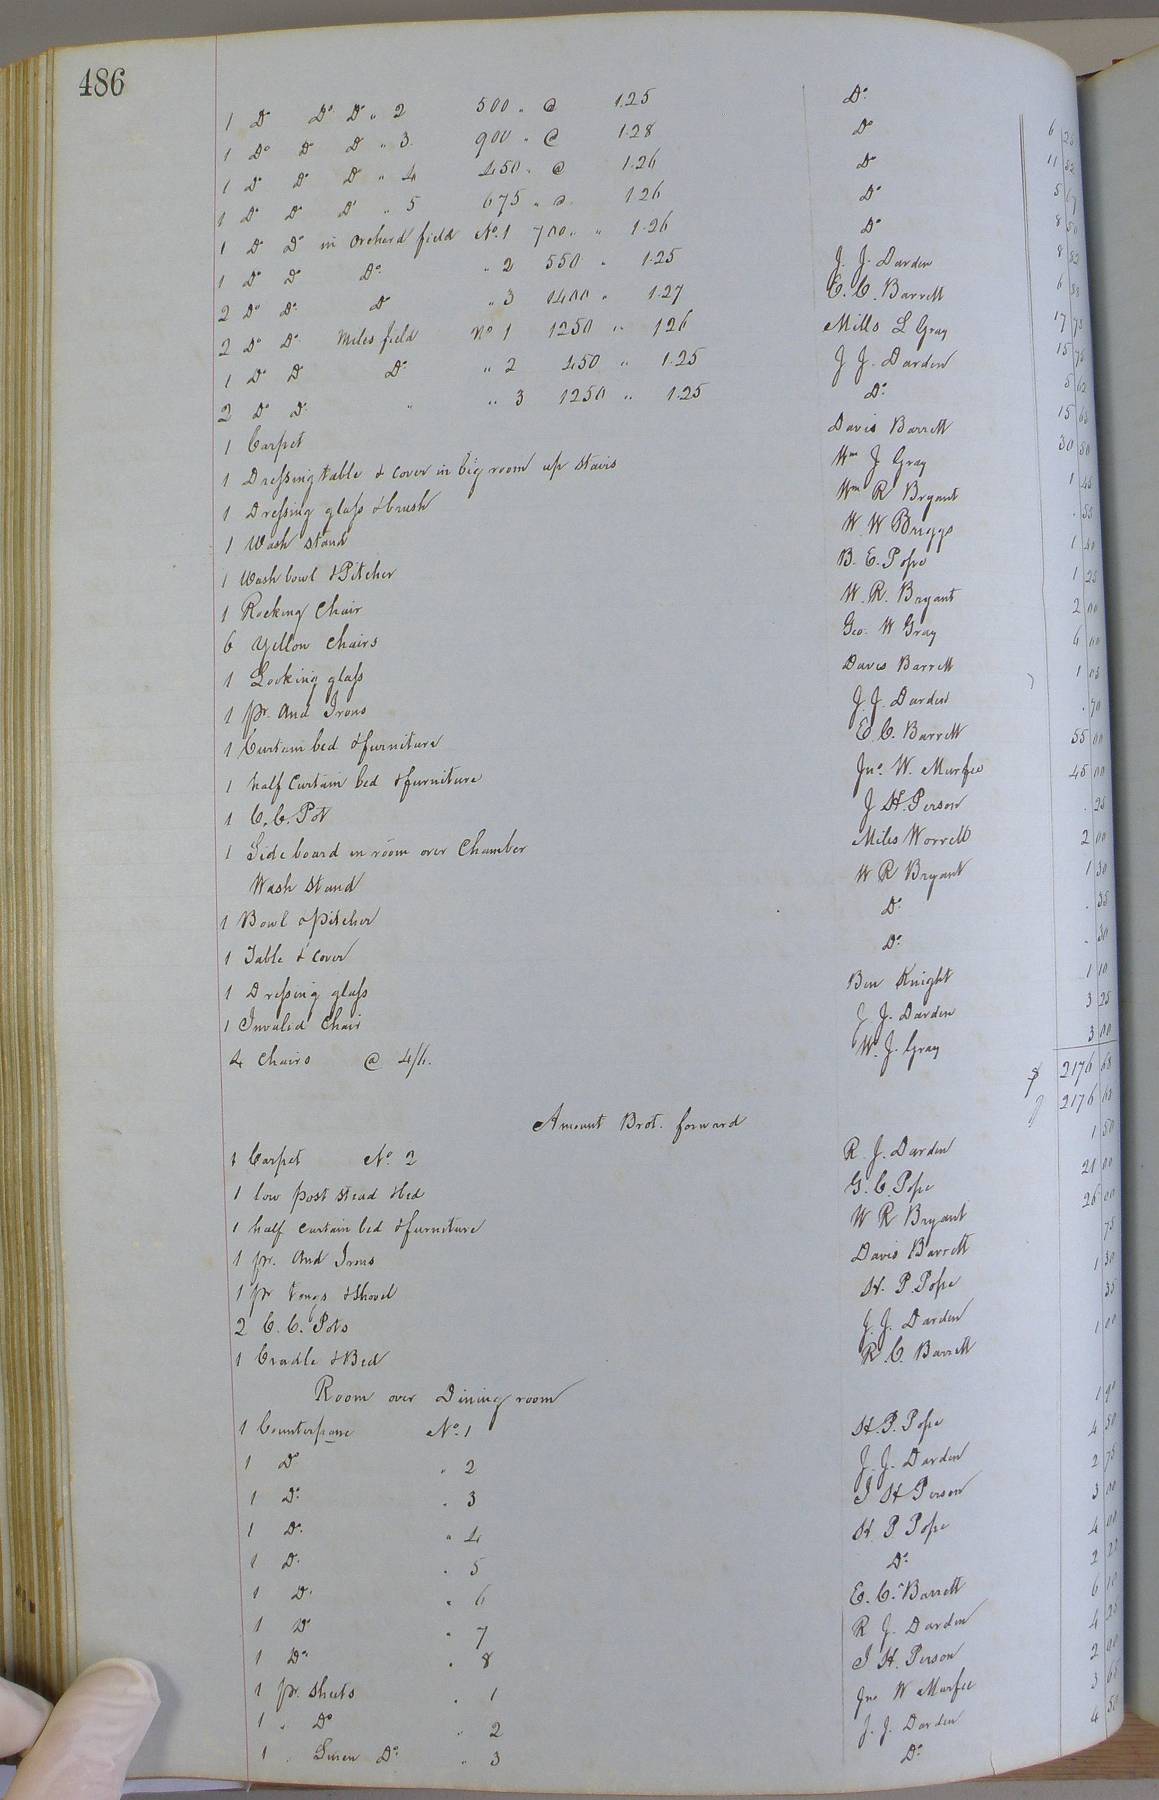 486
1 Do Do Do " 2 500 " @ 1.25 Do 6 25
1 Do Do Do " 3 900 " @ 1.28 Do 11 52
1 Do Do Do " 4 450 " @ 1.26 Do 5 67
1 Do Do Do " 5 675 " @ 1.26 Do 8 50
1 Do Do in Orchard field No. 1 700 " " 1.26 Do 8 82
1 Do Do Do " 2 550 " 1.25 J. J. Darden 6 88
2 Do Do Do " 3 1400 " 1.27 E. C. Barrett 17 78
2 Do Do Miles field No 1 1250 " 126 Mills L Gray 15 75
1 Do Do Do " 2 450 " 1.25 J J. Darden 5 62
2 Do Do " " 3 1250 " 1.25 Do 15 63
1 Carpet Davis Barrett 30 50
1 Dressing table & cover in big room up stairs Wm J Gray 1 45
1 Dressing glass & brush Wm R Bryant . 55
1 Wash stand W. W Briggs 1 40
1 Wash bowl & Pitcher B. E. Pope 1 25
1 Rocking Chair W. R. Bryant 2 00
6 Yellow Chairs Geo. W Gray 4 00
1 Looking glass Davis Barrett 1 05
1 pr. And Irons J. J. Darden . 70
1 Curtain bed & furniture E. C. Barrett 55 00
1 half Curtain bed & furniture Jno. W. Murfee 45 00
1 C. C. Pot J H. Person . 25
1 Side board in room over Chamber Miles Worrell 2 00
Wash Stand W R Bryant 1 30
1 Bowl & pitcher Do . 35
1 Table & cover Do . 30
1 Dressing glass Ben Knight 1 10
1 Invalid Chair J. J. Darden 3 25
4 Chairs @ 4/6. W. J. Gray 3 00
$ 2176 68
Amount Brot. forward 2176 68
1 Carpet No. 2 R. J. Darden 1 50
1 low post stead & bed G. C. Pope 21 00
1 half curtain bed & furniture W R Bryant 26 00
1 pr. And Irons Davis Barrett 75
1 pr tongs & Shovel H. P. Pope 1 30
2 C. C. Pots J. J. Darden 35
1 Cradle & Bed R. C. Barrett 1 00
Room over Dining room
1 Counterpane No. 1 H. P. Pope 1 90
1 Do " 2 J. J. Darden 4 50
1 Do " 3 J H Person 2 75
1 Do " 4 H. P Pope 3 00
1 Do " 5 Do 4 00
1 Do " 6 E. C. Barrett 2 25
1 Do " 7 R J. Darden 6 10
1 Do " 8 J H. Person 4 25
1 pr. Sheets " 1 Jno W Murfee 2 00
1 " Do " 2 J. J. Darden 3 65
1 " Linen Do " 3 Do 4 50